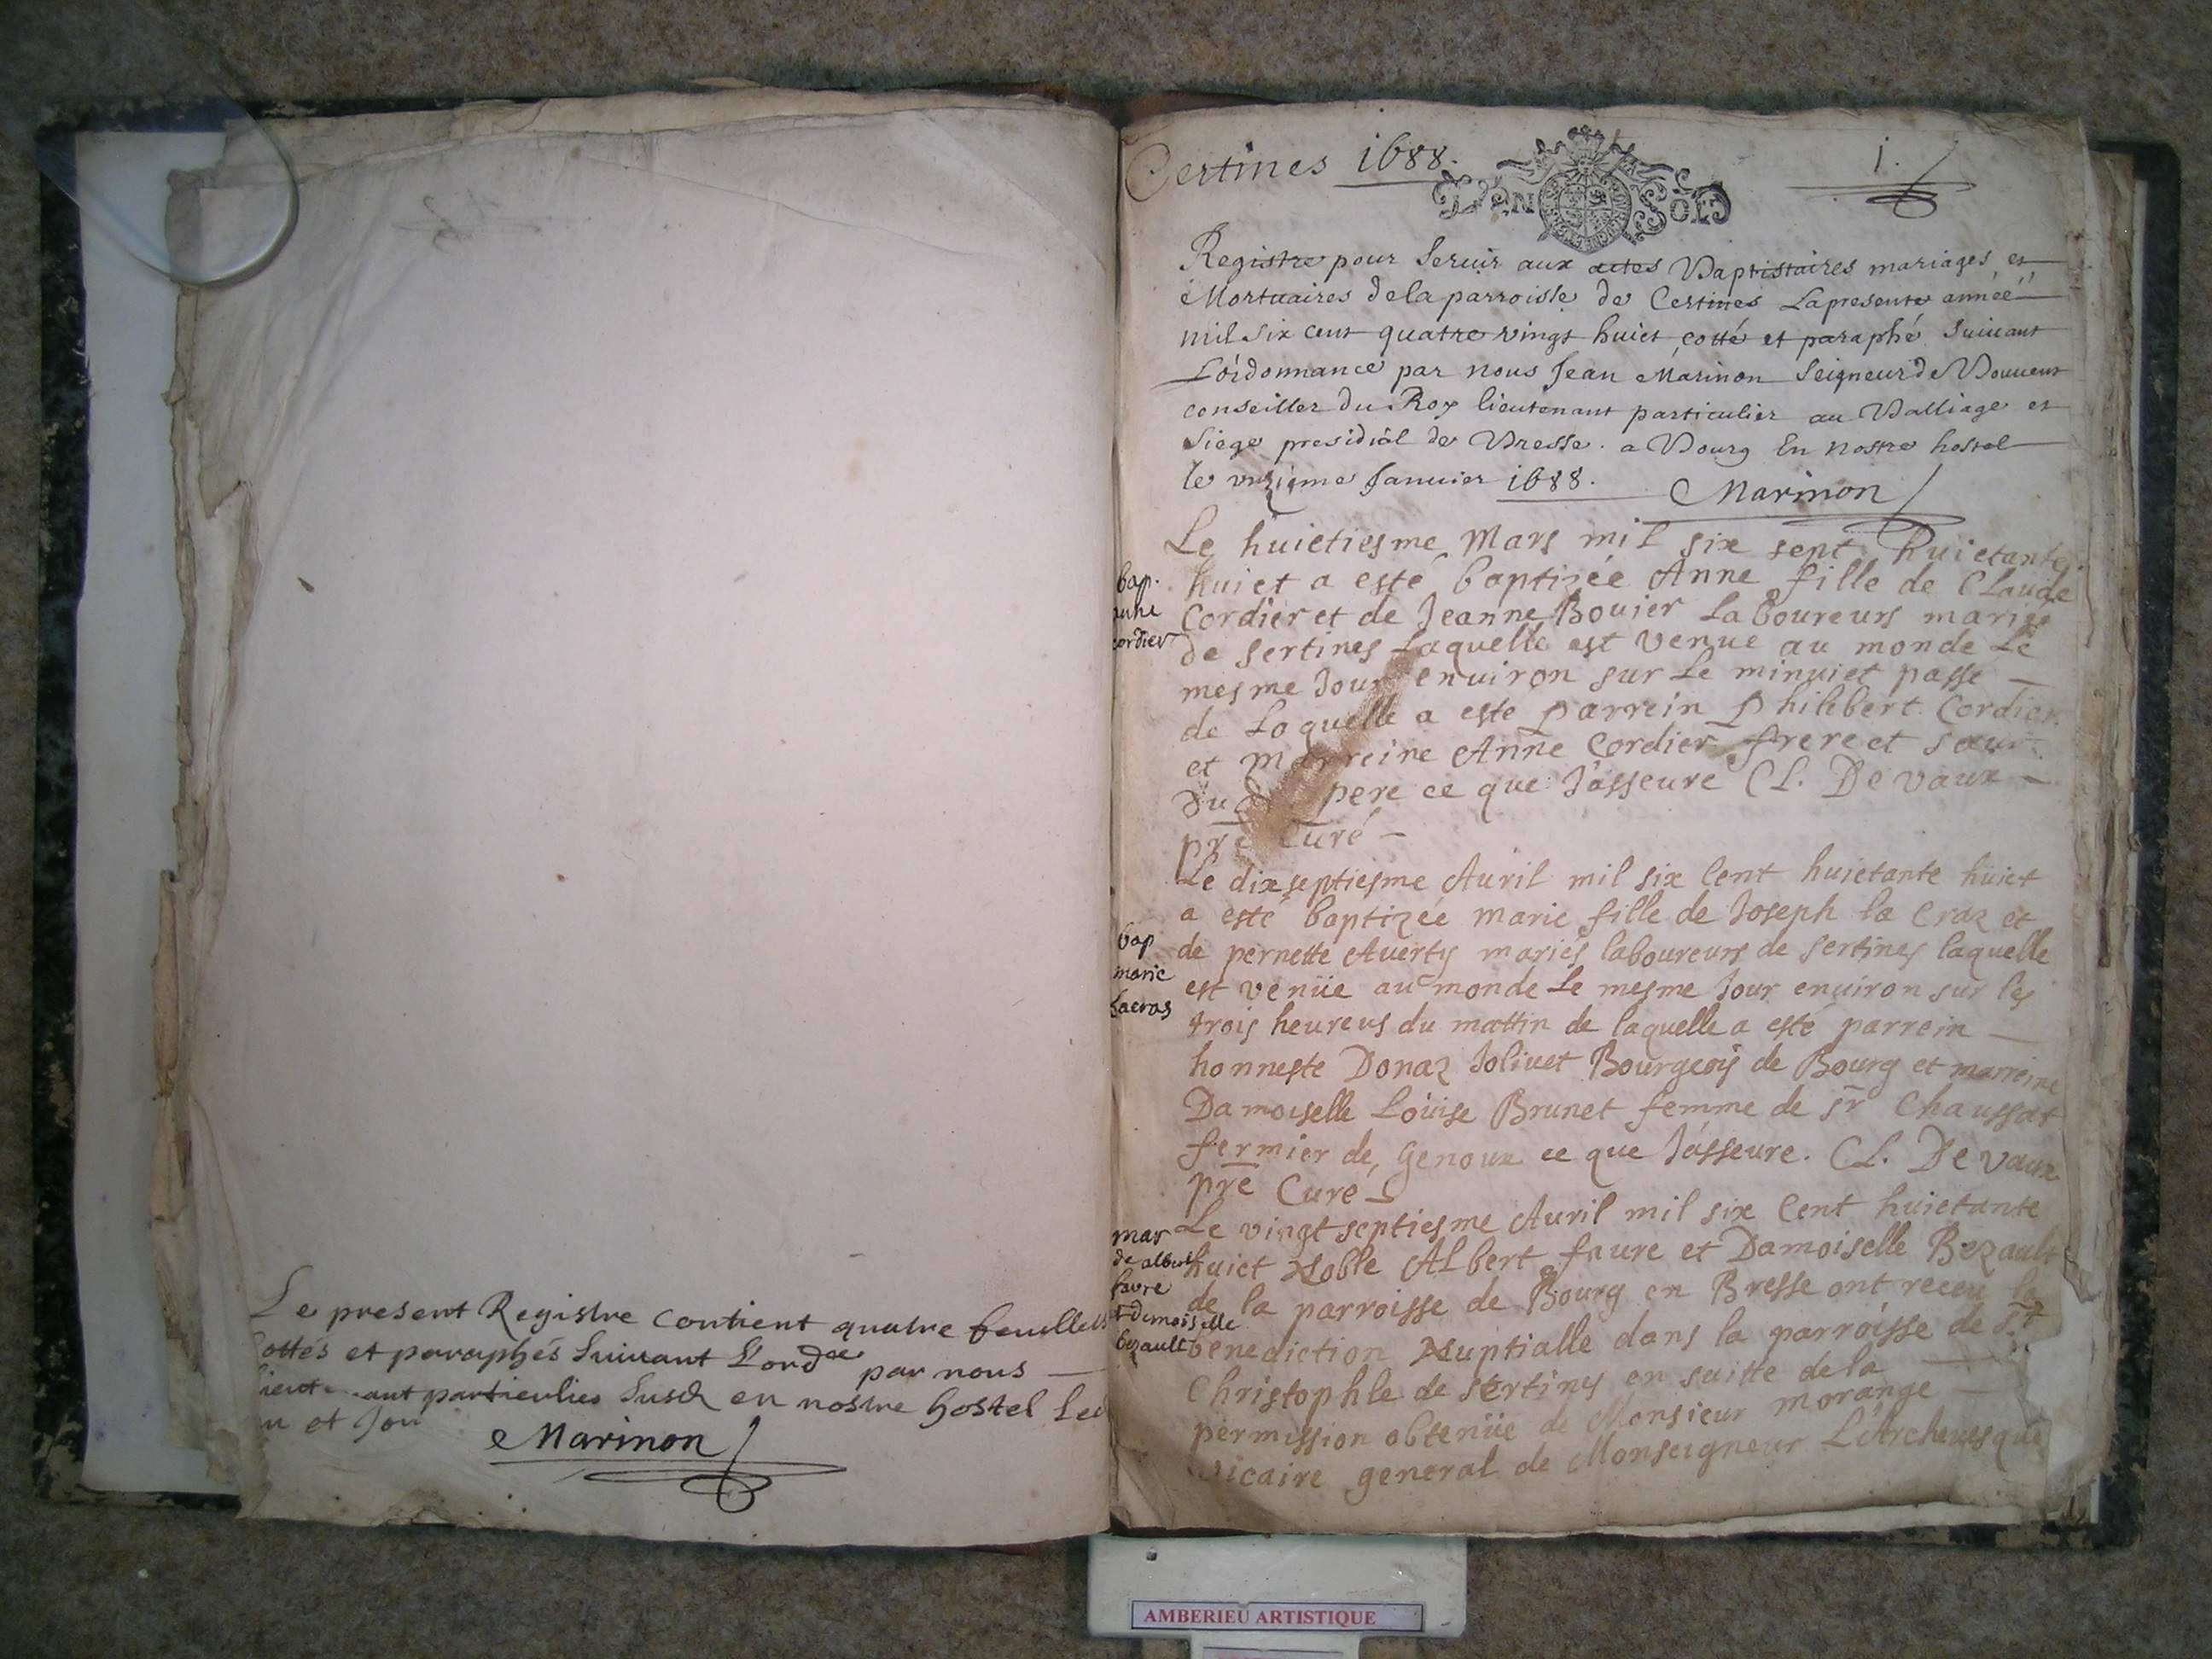 Le present Registre contient quatre feuillets
cottés et paraphés suivant L'ordce par nous
lieutenant particulier susd en nostre hostel Led
an et Jour
Marinon
Certines 1688.
1.
Registre pour servir aux actes Baptistaires mariages et
Mortuaires de la parroisse de Certines La presente année
mil six cent quatre vingt huict cotté et paraphé suivant
L'ordonnance par nous Jean Marinon Seigneur de Bouvent
conseiller du Roy lieutenant particulier au Balliage et
Siege presidial de Bresse. a Bourg En nostre hostel
le unzieme Janvier 1688.
Marinon
bap.
anne
cordier
Le huictiesme Mars mil six sent huictante
huict a esté baptizée Anne fille de Claude
Cordier et de Jeanne Bouier Laboureurs mariés
de Sertines Laquelle est venue au monde Le
mesme Jour enuiron sur Le minuict passe
de Laquelle a este parrein Philibert Cordier
et Marreine Anne Cordier frere et sœur
du pere ce que J'asseure CL. De vaux
pre Curé
bap
marie
Lacras
Le dixseptiesme Auril mil six Cent huictante huict
a esté baptizée marie fille de Joseph la Craz et
de pernette Auerty mariés laboureurs de Sertines laquelle
est venüe au monde Le mesme Jour enuiron sur les
trois heureus du mattin de laquelle a esté parrein
honneste Donaz Joliuet Bourgeois de Bourg et marreine
Damoiselle Loüise Brunet femme de sr Chaussat
fermier de Genoux ce que J'asseure. CL. De vaux
pre Curé
mar
de albert
favre
et Demoiselle
bezault
Le vingtseptiesme Auril mil six Cent huictante
huict Noble Albert faure et Damoiselle Bezault
de la parroisse de Bourg en Bresse ont receu la
benediction Nuptialle dans la parroisse de St
Christophle de Sertines en suitte de la
permission obtenüe de Monsieur morange
vicaire general de Monseigneur L'Archeuesque
AMBERIEU ARTISTIQUE